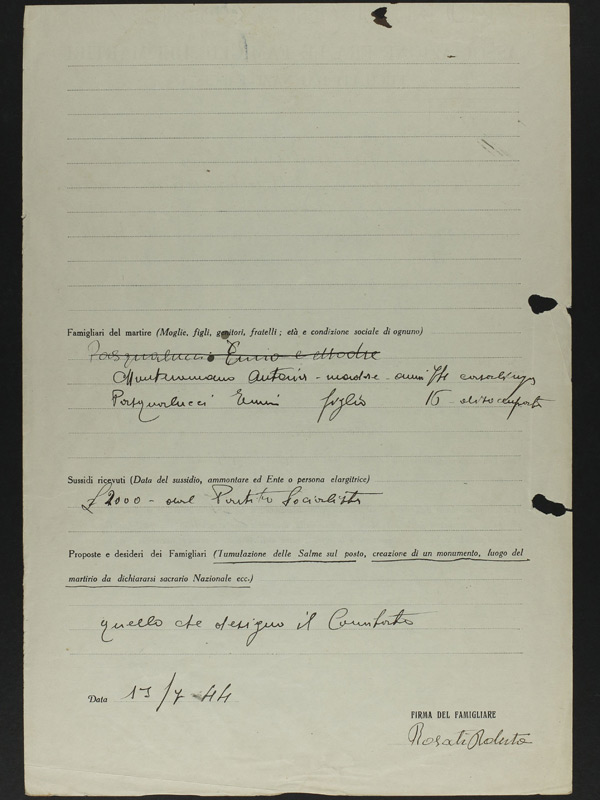 Famigliari del martire (Moglie, figli, genitori, fratelli ; età e condizione sociale di ognuno)
Pasqualucci Ennio e Madre
Monteromano Antonia - madre - anni casalinga
Pasqualucci Ennio figlio 15 - disoccupato
Sussidi ricevuti (Data del sussidio, ammontare ed Ente o persona elargitrice)
£ 2000 - dal Partito Socialista
Proposte e desideri dei Famigliari (Tumulazione delle Salme sul posto, creazione di un monumento, luogo del
martirio da dichiararsi sacrario Nazionale ecc.)
quello che designa il Comitato
Data 13/7-44
FIRMA DEL FAMIGLIARE
Rosati Roberto